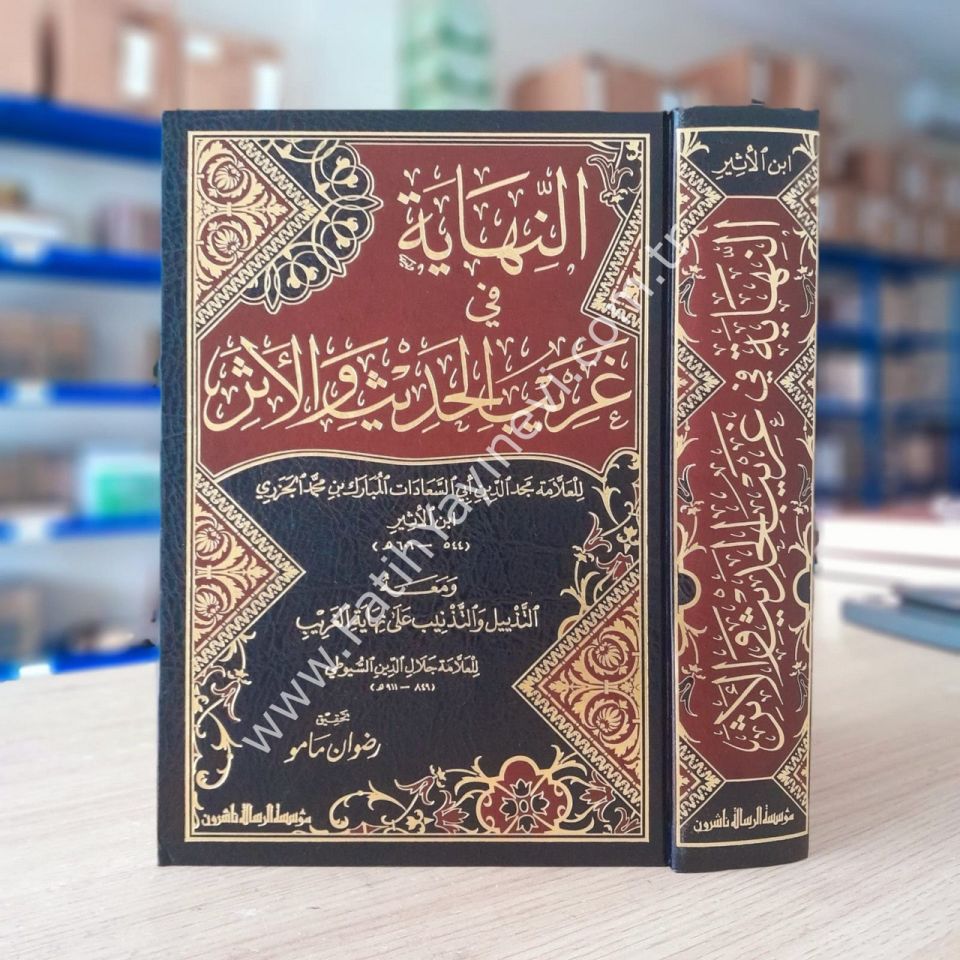 النِّهَايَة
في
غَرِيبِ الحَدِيْثِ وَالأَثَرِ
للعلّامة مجد الدين أبي السعادات المبارك بن محمد الجزري
ابن الأثير
(٥٤٤ - ٦٠٦ هـ)
ومعه
التَّذْييل والتَّذْنيب عَلى نِهَاية الغَريْب
للعلّامة جَلال الدين السُّيوطي
(٨٤٩ - ٩١١ هـ)
تحقيق
رضوان مامو
مؤسسة الرسالة ناشرون
ابن الأثير
النِّهَايَة في غَرِيبِ الحَدِيْثِ وَالأَثَرِ
مؤسسة الرسالة ناشرون
www.fatihyayinevi.com.tr